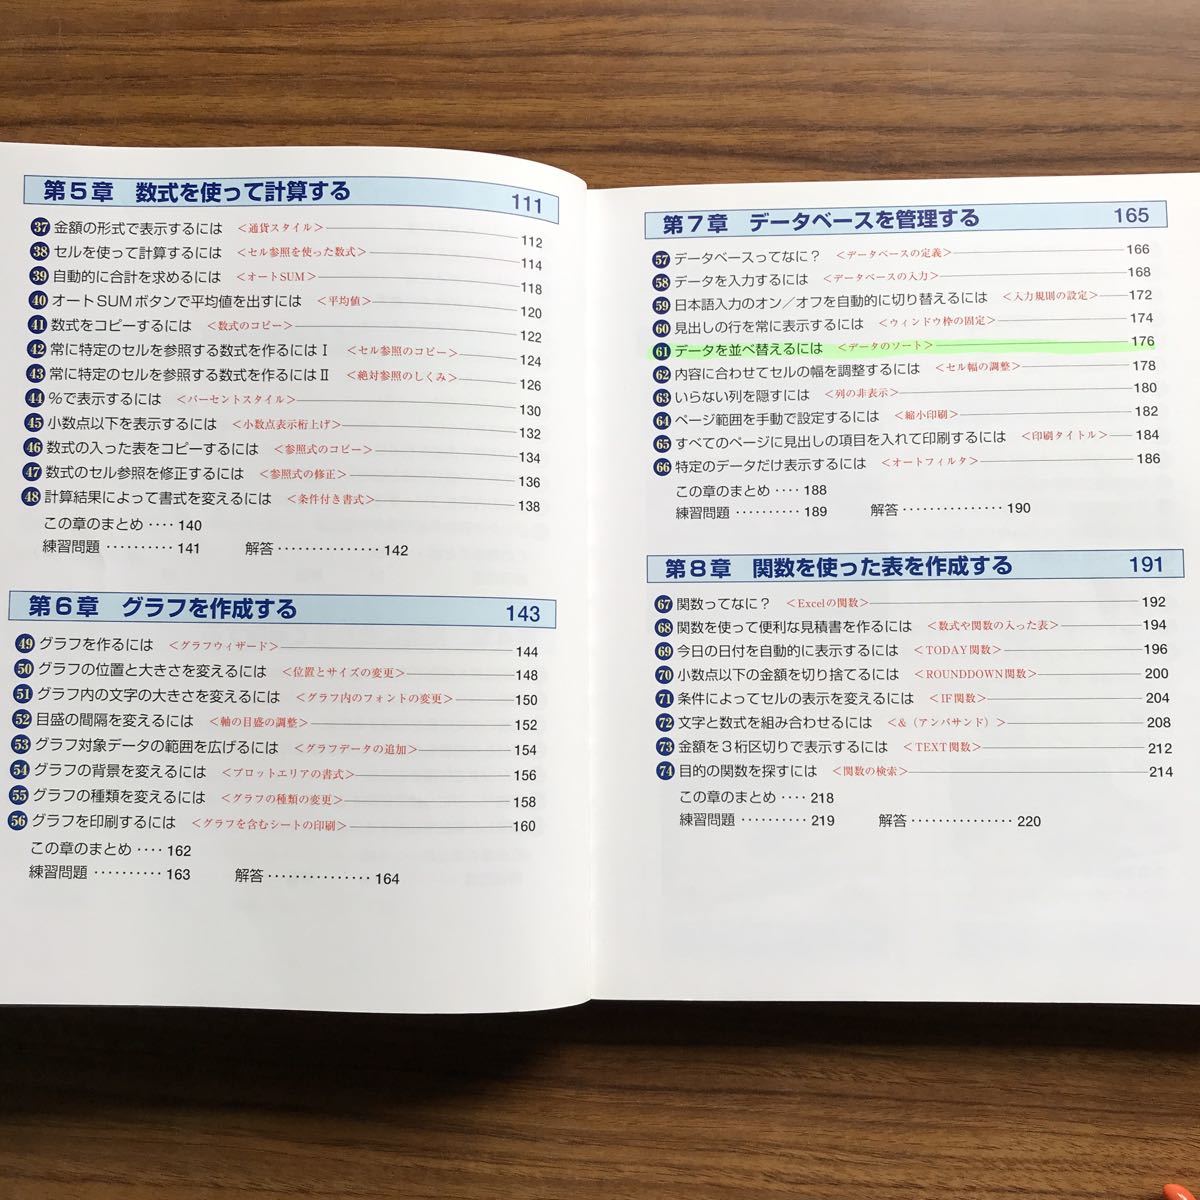 第5章 数式を使って計算する 111
37 金額の形式で表示するには <通貨スタイル> 112
38 セルを使って計算するには <セル参照を使った数式> 114
39 自動的に合計を求めるには <オートSUM> 118
40 オートSUMボタンで平均値を出すには <平均値> 120
41 数式をコピーするには <数式のコピー> 122
42 常に特定のセルを参照する数式を作るにはⅠ <セル参照のコピー> 124
43 常に特定のセルを参照する数式を作るにはⅡ <絶対参照のしくみ> 126
44 %で表示するには <パーセントスタイル> 130
45 小数点以下を表示するには <小数点表示桁上げ> 132
46 数式の入った表をコピーするには <参照式のコピー> 134
47 数式のセル参照を修正するには <参照式の修正> 136
48 計算結果によって書式を変えるには <条件付き書式> 138
この章のまとめ ···· 140
練習問題 ·········· 141 解答 ··············· 142
第6章 グラフを作成する 143
49 グラフを作るには <グラフウィザード> 144
50 グラフの位置と大きさを変えるには <位置とサイズの変更> 148
51 グラフ内の文字の大きさを変えるには <グラフ内のフォントの変更> 150
52 目盛の間隔を変えるには <軸の目盛の調整> 152
53 グラフ対象データの範囲を広げるには <グラフデータの追加> 154
54 グラフの背景を変えるには <プロットエリアの書式> 156
55 グラフの種類を変えるには <グラフの種類の変更> 158
56 グラフを印刷するには <グラフを含むシートの印刷> 160
この章のまとめ ···· 162
練習問題 ·········· 163 解答 ··············· 164
第7章 データベースを管理する 165
57 データベースってなに? <データベースの定義> 166
58 データを入力するには <データベースの入力> 168
59 日本語入力のオン/オフを自動的に切り替えるには <入力規則の設定> 172
60 見出しの行を常に表示するには <ウィンドウ枠の固定> 174
61 データを並べ替えるには <データのソート> 176
62 内容に合わせてセルの幅を調整するには <セル幅の調整> 178
63 いらない列を隠すには <列の非表示> 180
64 ページ範囲を手動で設定するには <縮小印刷> 182
65 すべてのページに見出しの項目を入れて印刷するには <印刷タイトル> 184
66 特定のデータだけ表示するには <オートフィルタ> 186
この章のまとめ ···· 188
練習問題 ·········· 189 解答 ··············· 190
第8章 関数を使った表を作成する 191
67 関数ってなに? <Excelの関数> 192
68 関数を使って便利な見積書を作るには <数式や関数の入った表> 194
69 今日の日付を自動的に表示するには <TODAY関数> 196
70 小数点以下の金額を切り捨てるには <ROUNDDOWN関数> 200
71 条件によってセルの表示を変えるには <IF関数> 204
72 文字と数式を組み合わせるには <&(アンパサンド)> 208
73 金額を3桁区切りで表示するには <TEXT関数> 212
74 目的の関数を探すには <関数の検索> 214
この章のまとめ ···· 218
練習問題 ·········· 219 解答 ··············· 220